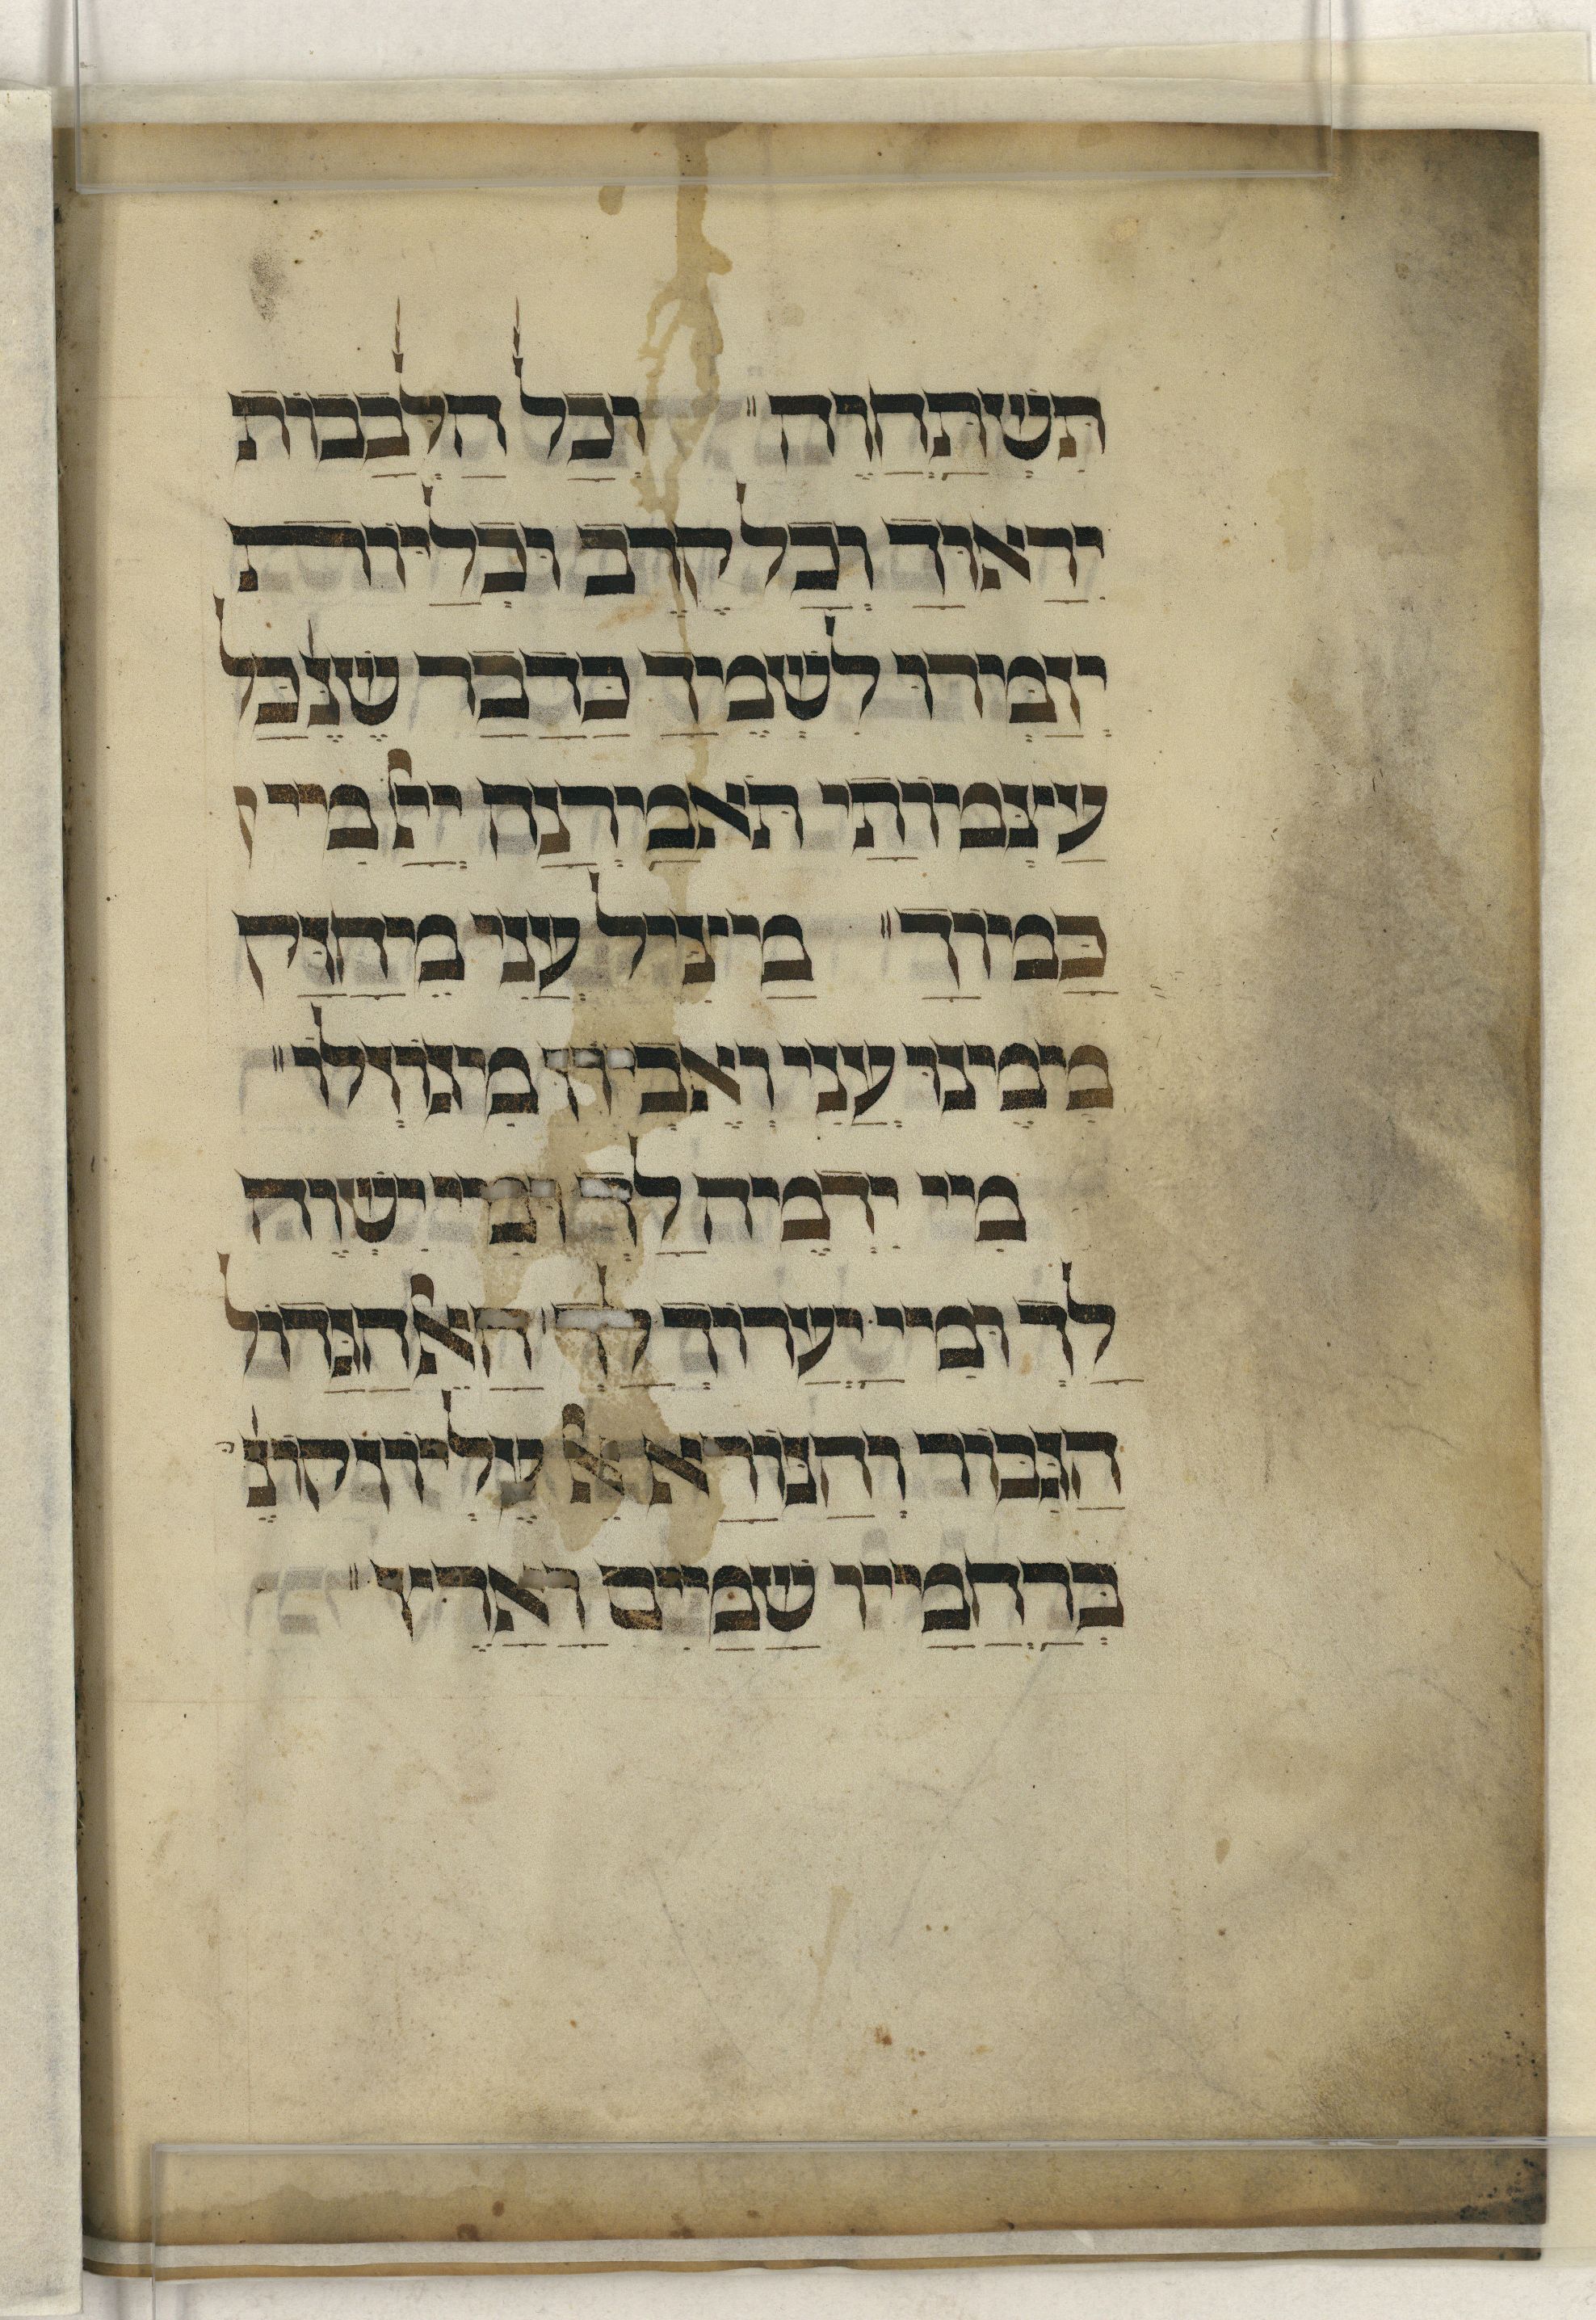 תִּשְׁתַּחֲוֶה׃ וְכָל הַלְּבָבוֹת
יִרָאוּךָ וְכָל קֶרֶב וּכְלָיוֹת
יְזַמְּרוּ לִשְׁמֶךָ כַּדָּבָר שֶׁנֶּ כָּל
עַיצְמוֹתַי תֹּאמַרְנָה יְיָ מִיי
כָּמוֹךָ׃ מַיצִּיל עָנִי מֵיחָזָק
מִימֶּינּוּ עָנִי וְאֶבְיוֹן מִיגּוֹזְלוֹ׃
מִיי יִדְמֶיה לָךְ וּמִיי יִשְׁוֶה
לָךְ וּמִיי יַעֲרוֹךְ לָךְ הָאֵל הַגָּדוֹל
הַגִּבּוֹר וְהַנּוֹרָא אֵל עֶלְיוֹן קוֹנֶ
בְּרַחֲמָיו שָׁמַיִם וָאָרֶץ׃